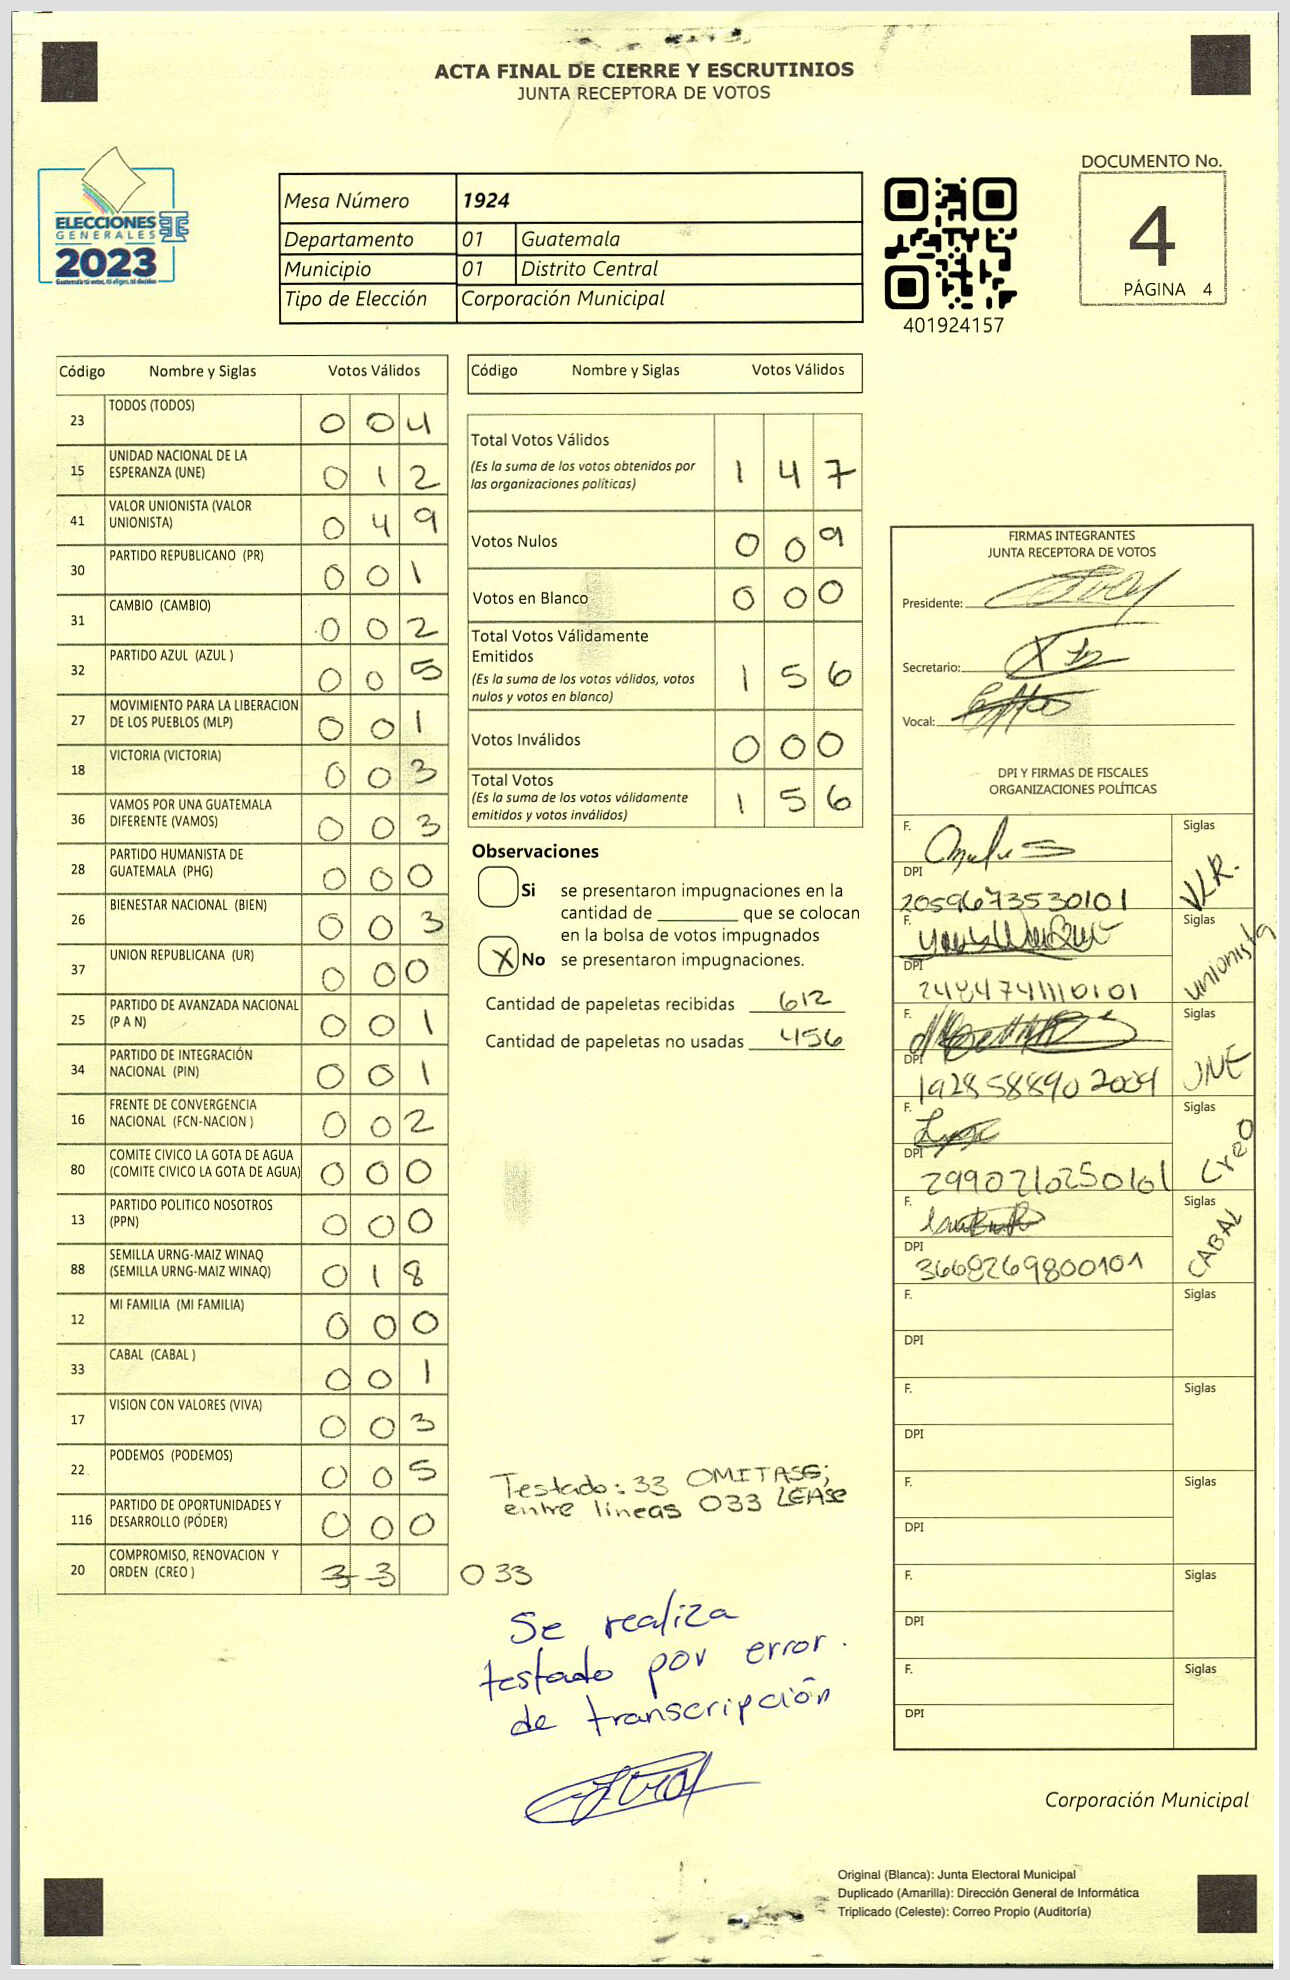 ACTA FINAL DE CIERRE Y ESCRUTINIOS
JUNTA RECEPTORA DE VOTOS
ELECCIONES
GENERALES
2023
Mesa Número 1924
Departamento 01 Guatemala
Municipio 01 Distrito Central
Tipo de Elección Corporación Municipal
401924157
DOCUMENTO No.
4
PÁGINA 4
Código Nombre y Siglas Votos Válidos
23 TODOS (TODOS) 0 0 4
15 UNIDAD NACIONAL DE LA
ESPERANZA (UNE) 0 1 2
41 VALOR UNIONISTA (VALOR
UNIONISTA) 0 4 9
30 PARTIDO REPUBLICANO (PR) 0 0 1
31 CAMBIO (CAMBIO) 0 0 2
32 PARTIDO AZUL (AZUL ) 0 0 5
27 MOVIMIENTO PARA LA LIBERACION
DE LOS PUEBLOS (MLP) 0 0 1
18 VICTORIA (VICTORIA) 0 0 3
36 VAMOS POR UNA GUATEMALA
DIFERENTE (VAMOS) 0 0 3
28 PARTIDO HUMANISTA DE
GUATEMALA (PHG) 0 0 0
26 BIENESTAR NACIONAL (BIEN) 0 0 3
37 UNION REPUBLICANA (UR) 0 0 0
25 PARTIDO DE AVANZADA NACIONAL
(P A N) 0 0 1
34 PARTIDO DE INTEGRACIÓN
NACIONAL (PIN) 0 0 1
16 FRENTE DE CONVERGENCIA
NACIONAL (FCN-NACION ) 0 0 2
80 COMITE CIVICO LA GOTA DE AGUA
(COMITE CIVICO LA GOTA DE AGUA) 0 0 0
13 PARTIDO POLITICO NOSOTROS
(PPN) 0 0 0
88 SEMILLA URNG-MAIZ WINAQ
(SEMILLA URNG-MAIZ WINAQ) 0 1 8
12 MI FAMILIA (MI FAMILIA) 0 0 0
33 CABAL (CABAL ) 0 0 1
17 VISION CON VALORES (VIVA) 0 0 3
22 PODEMOS (PODEMOS) 0 0 5
116 PARTIDO DE OPORTUNIDADES Y
DESARROLLO (PODER) 0 0 0
20 COMPROMISO, RENOVACION Y
ORDEN (CREO ) 3 3 033
Código Nombre y Siglas Votos Válidos
Total Votos Válidos
(Es la suma de los votos obtenidos por
las organizaciones políticas) 1 4 7
Votos Nulos 0 0 9
Votos en Blanco 0 0 0
Total Votos Válidamente
Emitidos
(Es la suma de los votos válidos, votos
nulos y votos en blanco) 1 5 6
Votos Inválidos 0 0 0
Total Votos
(Es la suma de los votos válidamente
emitidos y votos inválidos) 1 5 6
Observaciones
Si se presentaron impugnaciones en la
cantidad de ________ que se colocan
en la bolsa de votos impugnados
X No se presentaron impugnaciones.
Cantidad de papeletas recibidas 612
Cantidad de papeletas no usadas 456
Testado: 33 OMITASE;
entre líneas 033 LEASE
Se realiza
testado por error.
de transcripción
FIRMAS INTEGRANTES
JUNTA RECEPTORA DE VOTOS
Presidente:
Secretario:
Vocal:
DPI Y FIRMAS DE FISCALES
ORGANIZACIONES POLÍTICAS
F. Siglas
DPI VLR.
2059673530101
F. Siglas
DPI unionista
2484741110101
F. Siglas
DPI UNE
1928588902009
F. Siglas
DPI Creo
2990210250101
F. Siglas
DPI CABAL
3668269800101
F. Siglas
DPI
F. Siglas
DPI
F. Siglas
DPI
F. Siglas
DPI
F. Siglas
DPI
Corporación Municipal
Original (Blanca): Junta Electoral Municipal
Duplicado (Amarilla): Dirección General de Informática
Triplicado (Celeste): Correo Propio (Auditoría)